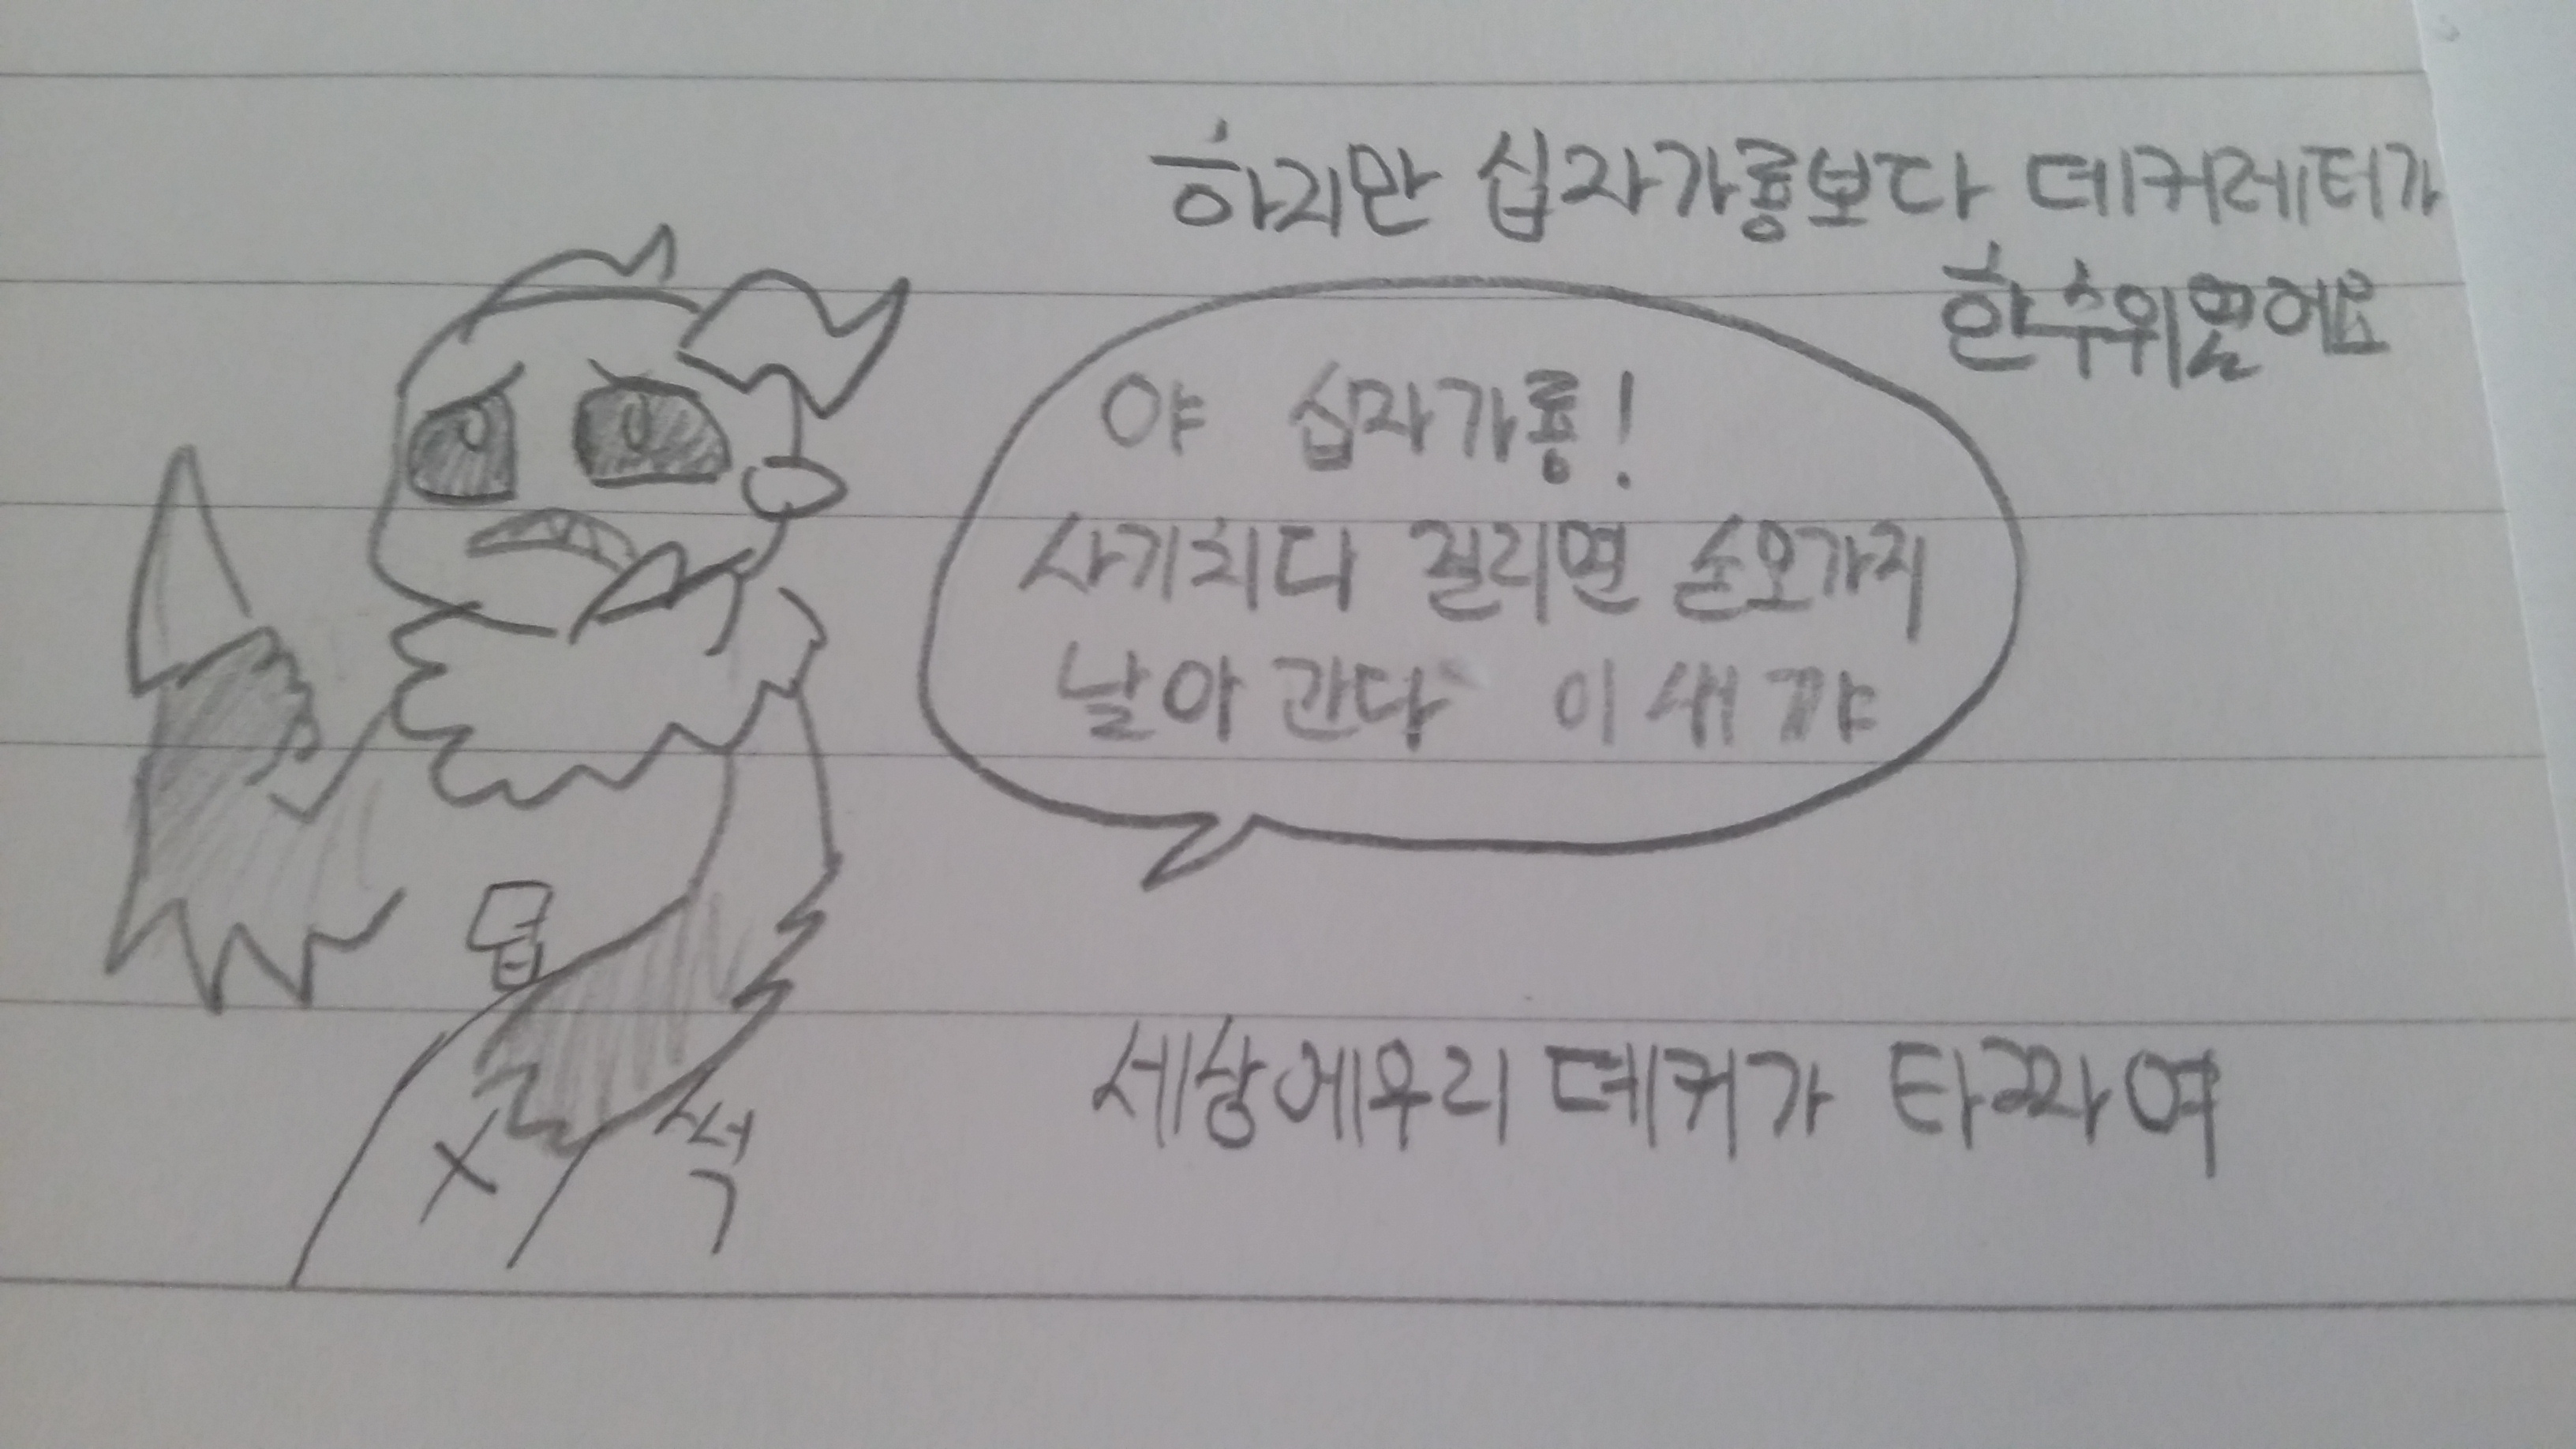 하지만 십자가룡보다 데커레터가
한수위였어요
야 십자가룡!
사기치다 걸리면 손모가지
날아간다 이새꺄
덥
석
세상에우리 데커가 타짜여